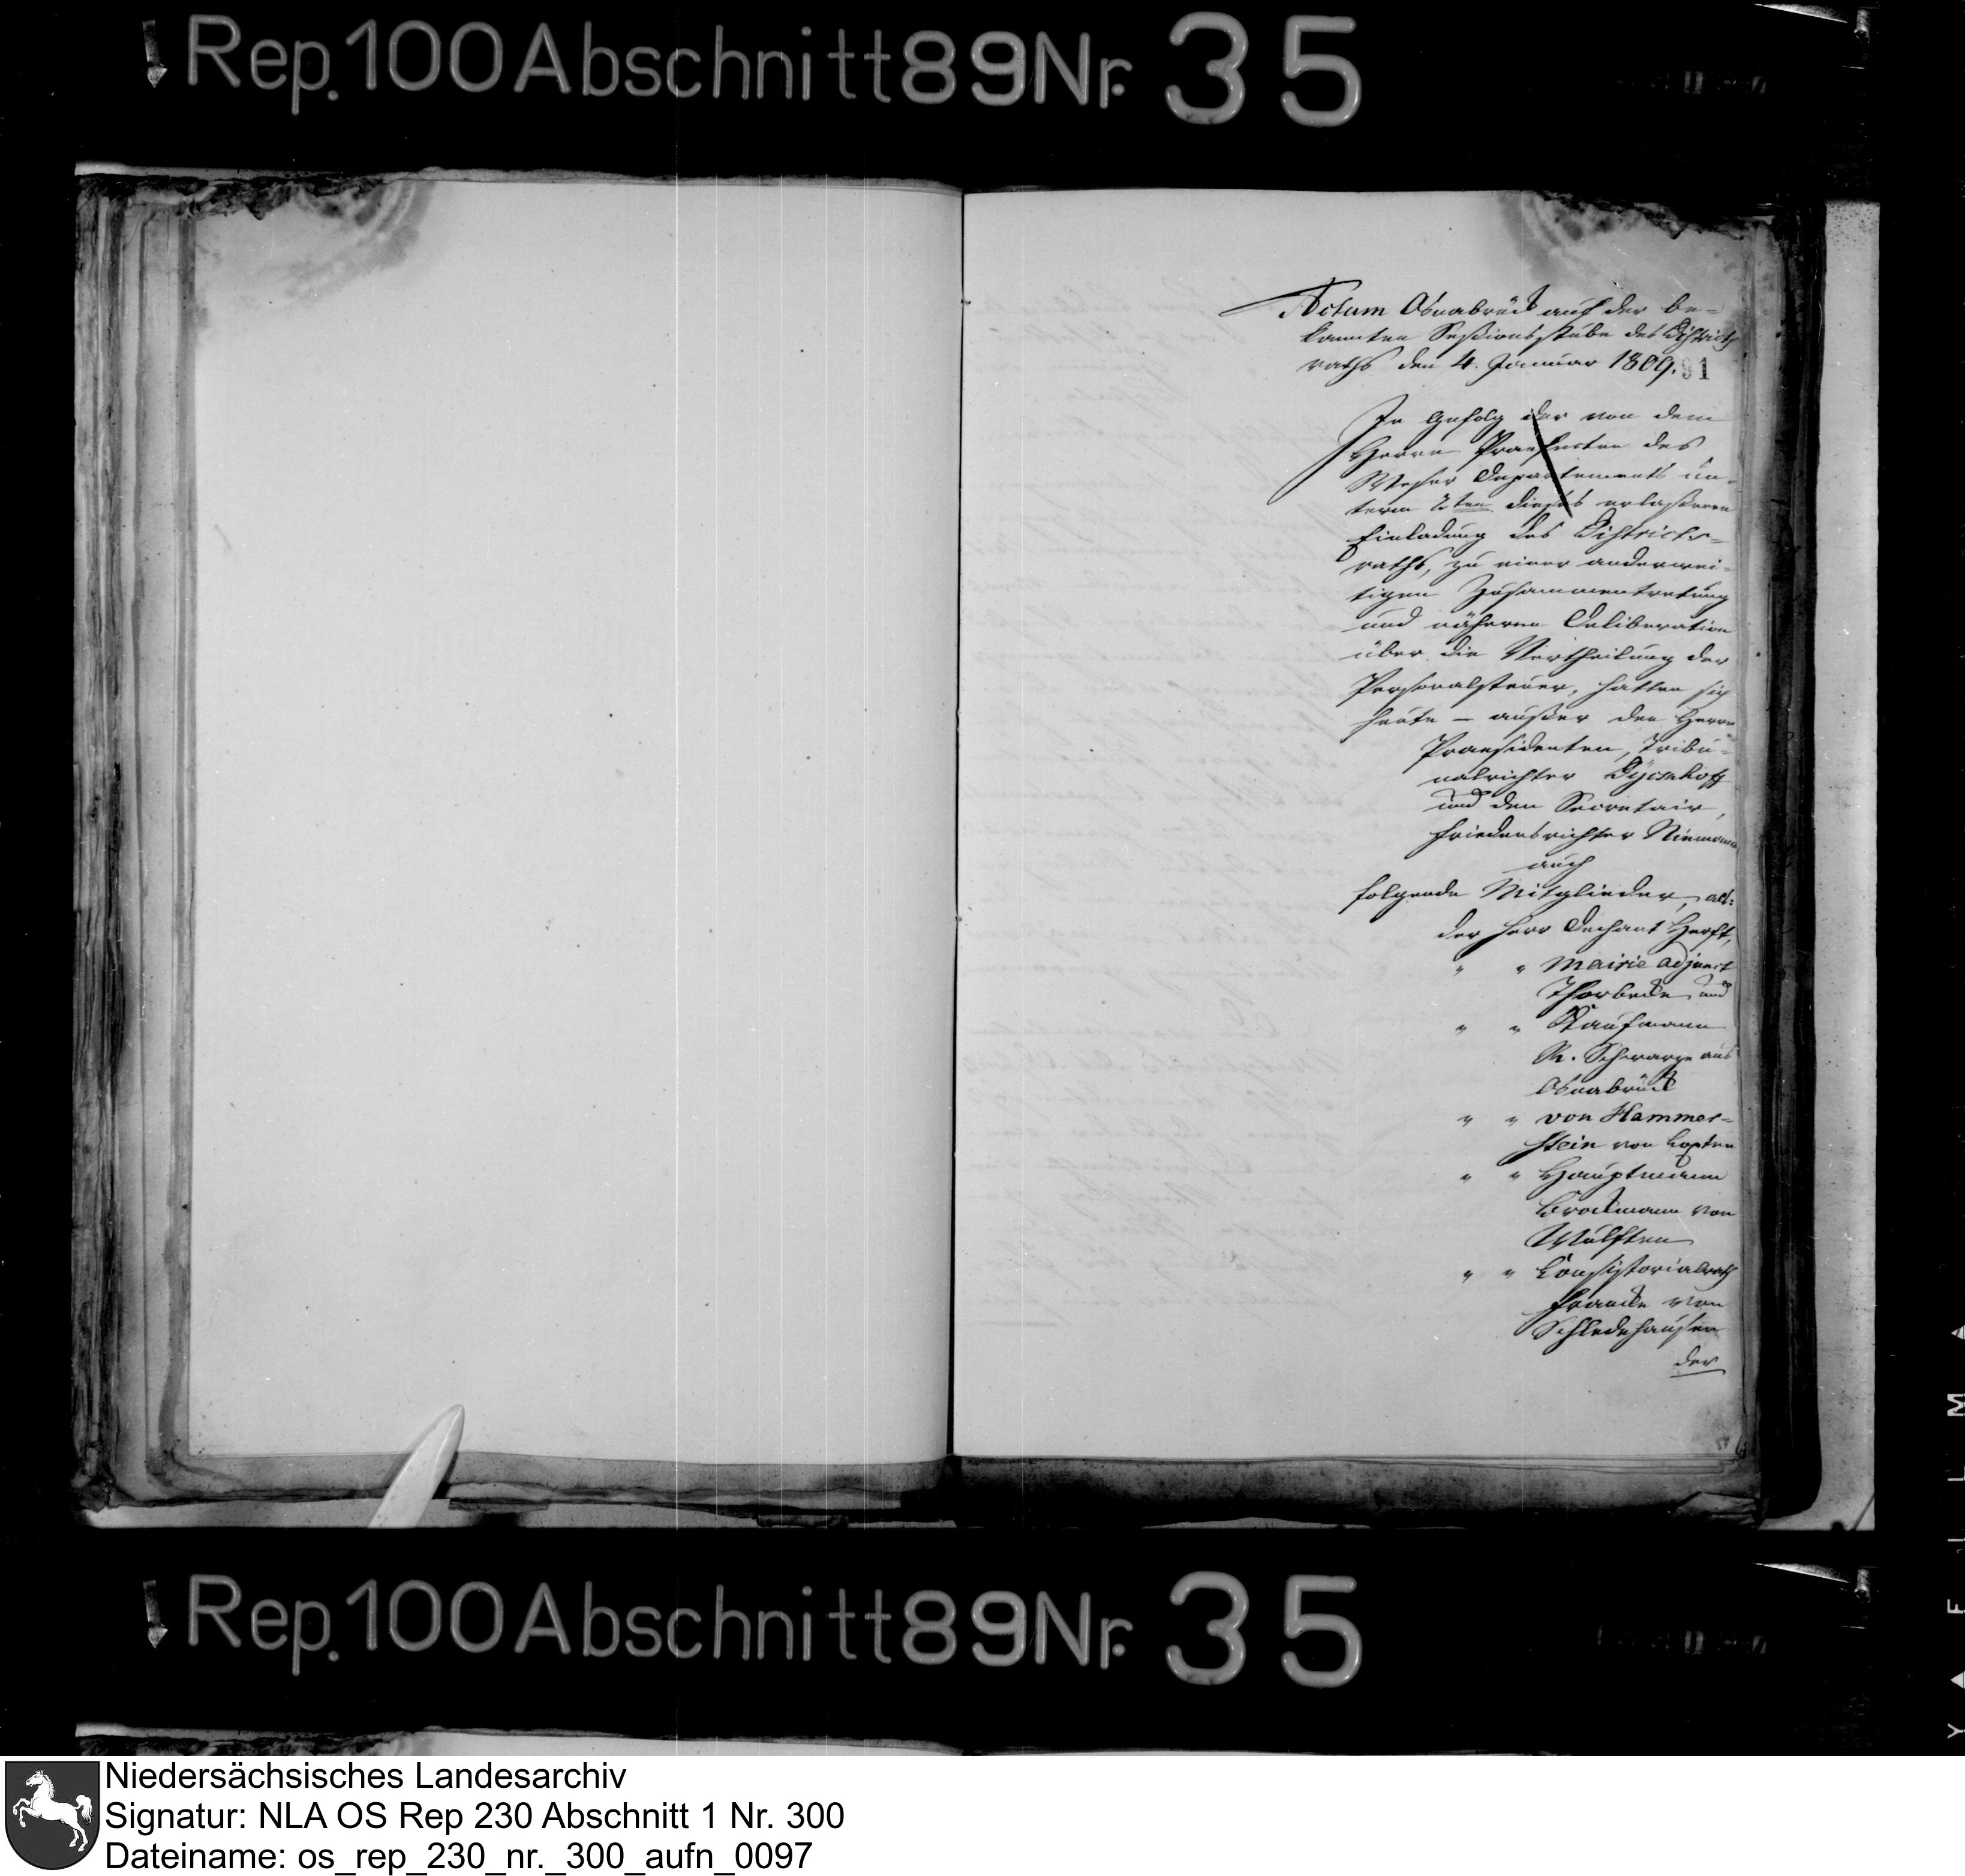 Rep. 100 Abschnitt 89 Nr. 35
Actum Osnabrück auf der be-
kannten Sessionsstube des Districts
raths den 4. Januar 1809.
91
In Gefolg der von dem
Herrn Praefecten des
Weser Departements un-
term 2ten dieses erlaßenen
Einladung des Districts-
raths, zu einer anderwei-
tigen Zusammentretung
und näheren Deliberation
über die Vertheilung der
Personalsteuer, hatten sich
heute – außer den Herrn
Praesidenten, Tribu-
nalrichter Dyckhoff
und den Secretair,
Friedensrichter Niemann
auch
folgende Mitglieder, als:
der Herr Dechant Herft,
" " Mairie adjunct
Thorbecke und
" " Kaufmann
R. Schwarze aus
Osnabrück
" " von Hammer-
stein von Loxten
" " Hauptmann
Brockmann von
Wulften
" " Consistorialrath
Francke von
Schledehausen
der
Rep. 100 Abschnitt 89 Nr. 35
Niedersächsisches Landesarchiv
Signatur: NLA OS Rep 230 Abschnitt 1 Nr. 300
Dateiname: os_rep_230_nr._300_aufn_0097